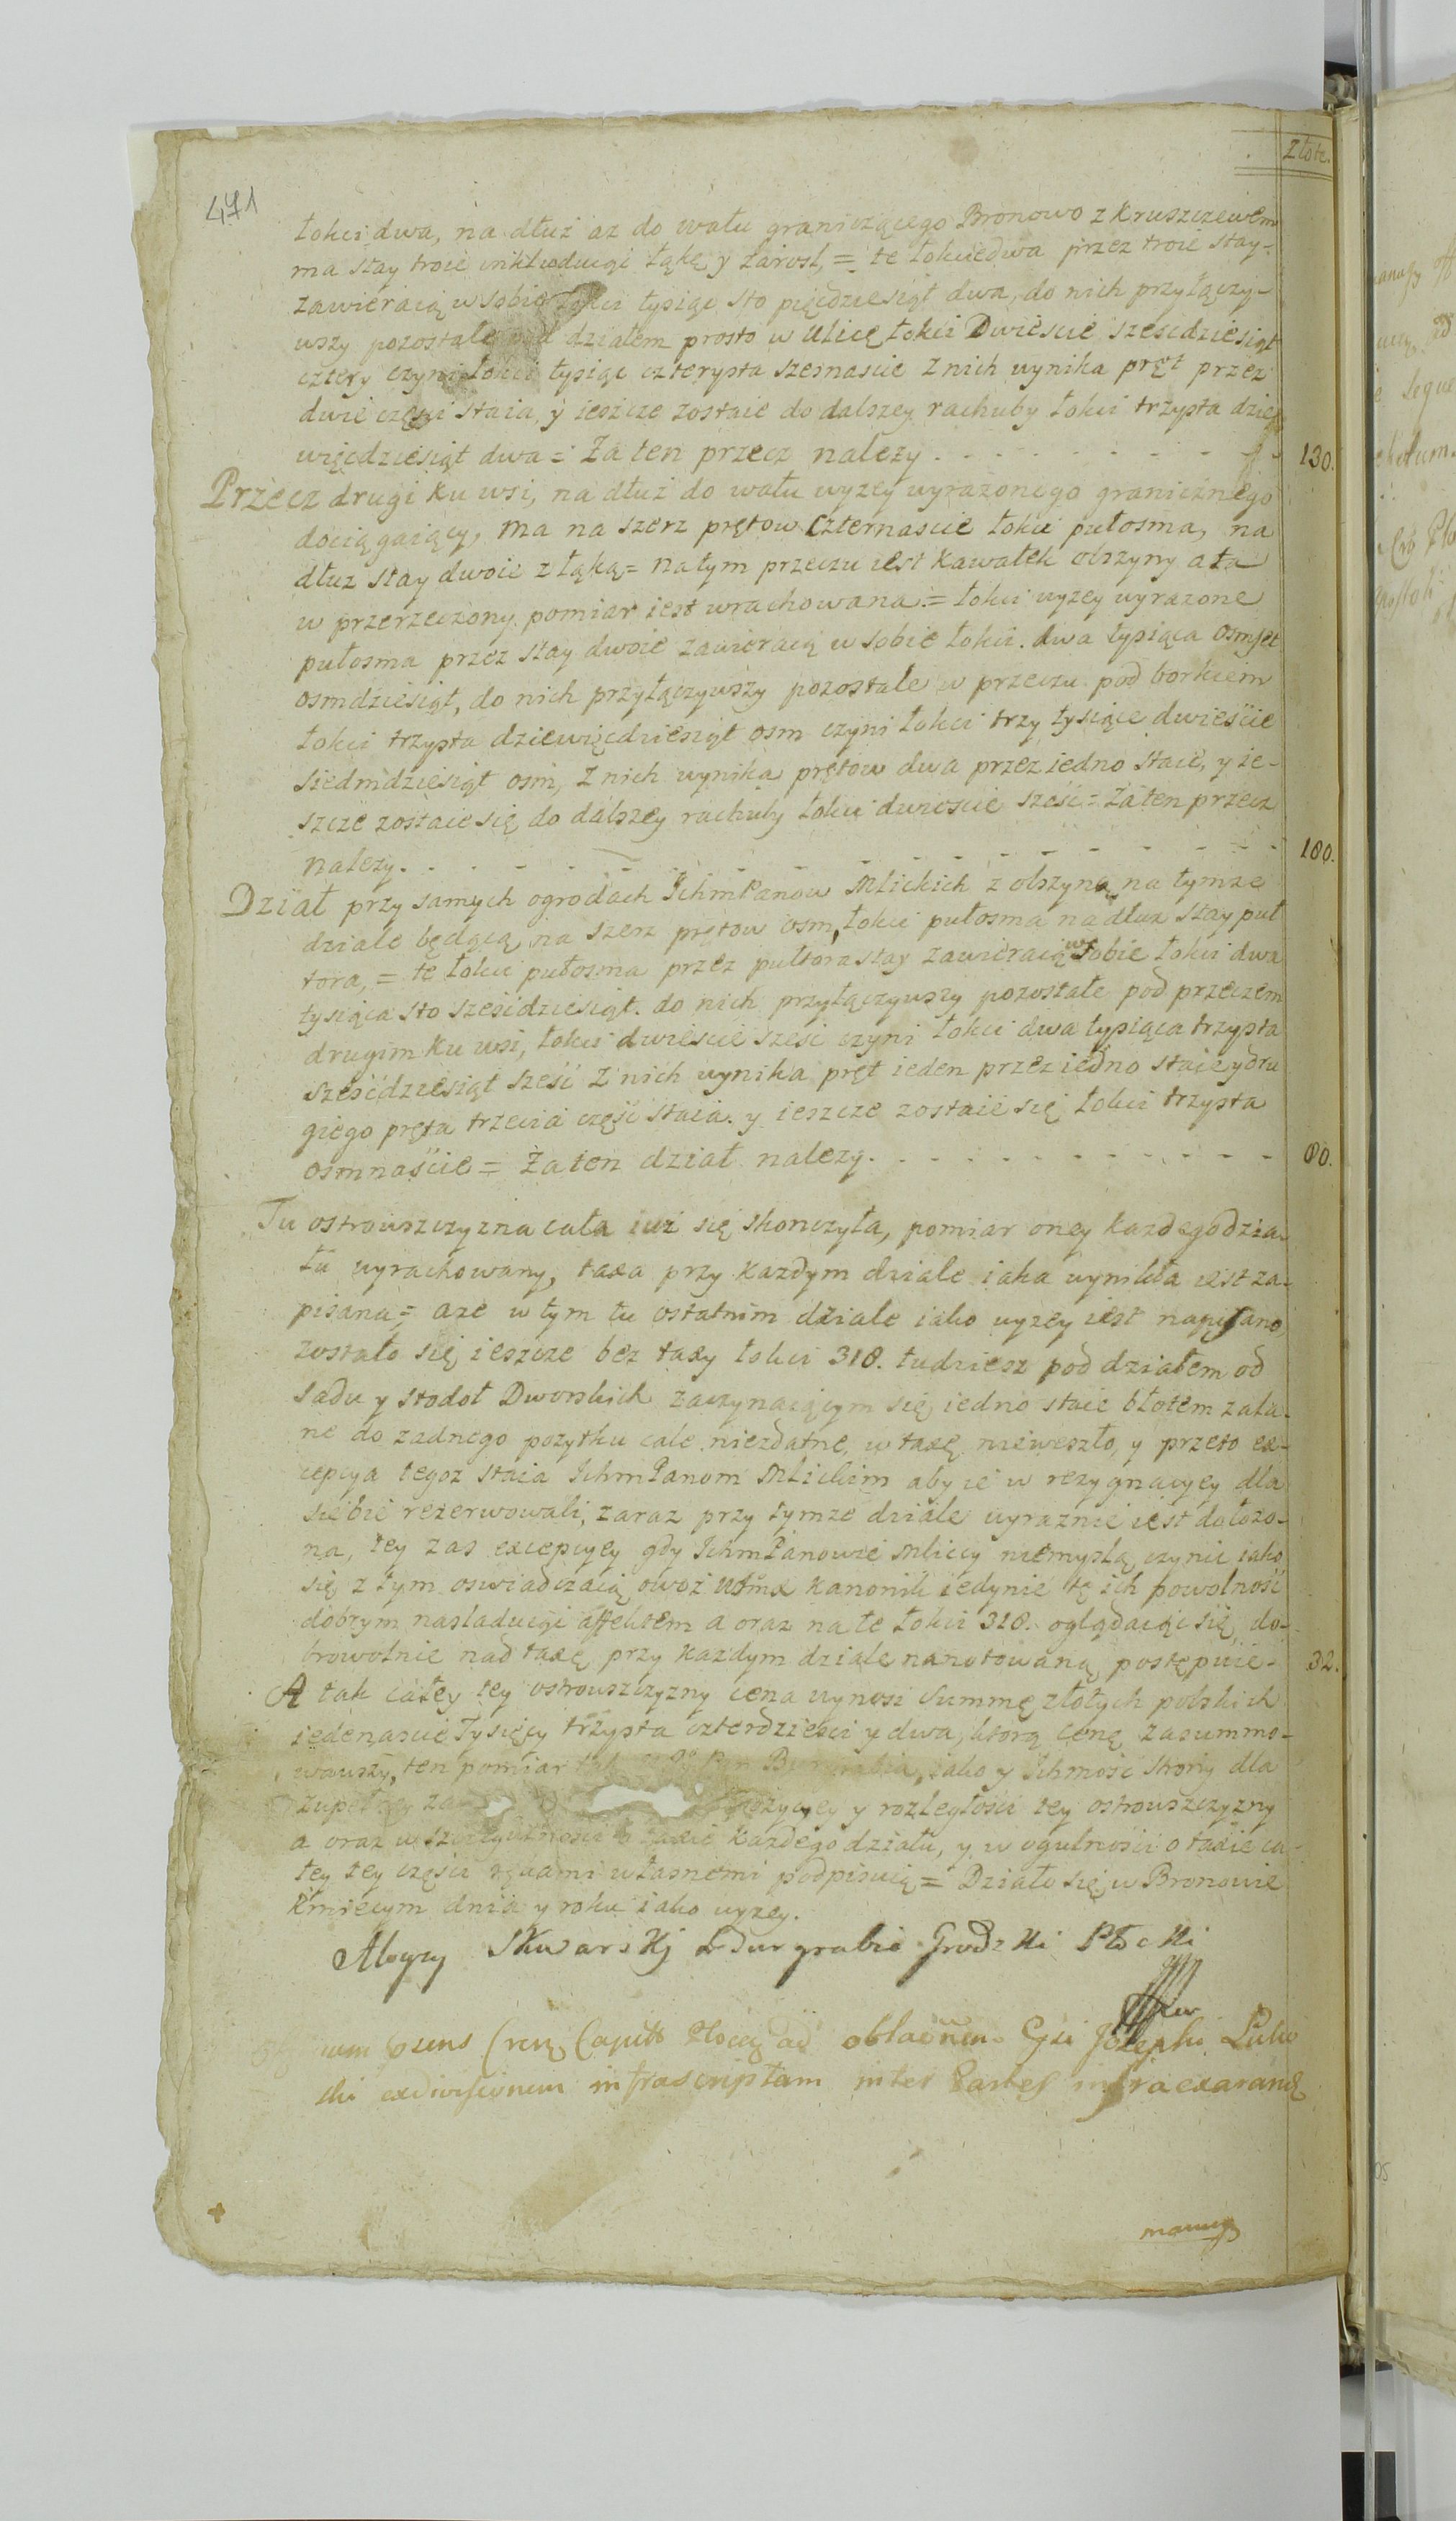 Złote.
471
łokci dwa, na dłuż az do wału graniczącego Bronowo z Kruszczewem
ma stay troie inkludując łąkę y zarosl, = te łokcie dwa przez troie stay-
zawieraią w sobie łokci tysiąc sto pięcdziesiąt dwa, do nich przyłączy-
wszy pozostałe pod działem prosto w Ulicę łokci Dwieście szescdziesiąt
cztery czyni łokci tysiąc czterysta szesnascie z nich wynika pręt przez
dwie częsci staia, y ieszcze zostaie do dalszey rachuby łokci trzysta dzie
więcdziesiąt dwa = Za ten przecz nalezy . - - - - - - - - 130.
Przecz drugi ku wsi, na dłuż do wału wyzey wyrazonego granicznego
dociągaiący, ma na szerz prętow czternascie łokci pułosma, na
dłuz stay dwoie z łąką = na tym przeczu iest kawałek olszyny a ta
w przerzeczony pomiar iest wrachowana = łokci wyzey wyrazone
pułosma przez stay dwoie zawieraią w sobie łokci dwa tysiąca osmset
osmdziesiąt, do nich przyłączywszy pozostałe w przeczu pod borkiem
łokci trzysta dziewięcdziesiąt osm czyni łokci trzy tysiące dwieście
siedmdziesiąt osm, z nich wynika prętow dwa przez iedno staie, y ie-
szcze zostaie się do dalszey rachuby łokci dwiescie sześć = Za ten przecz
nalezy. - - - - - - - - - - - - - - - 180.
Dział przy samych ogrodach IchmPanow Mlickich z olszyną na tymze
dziale będącą na szerz prętow osm, łokci pułosma na dłuz stay puł
tora, = te łokci pułosma przez pułtora stay zawieraią w sobie łokci dwa
tysiąca sto szescdziesiąt. do nich przyłączywszy pozostałe pod przeczem
drugim ku wsi, łokci dwieście sześc czyni łokci dwa tysiąca trzysta
szescdziesiąt sześć z nich wynika pręt ieden przez iedno staie y dru
giego pręta trzecia część staia. y ieszcze zostaie się łokci trzysta
osmnaście = Za ten dział nalezy. - - - - - - - - - - 80.
Tu ostrowszczyzna cała iuż się skonczyła, pomiar oney kazdego dzia-
łu wyrachowany, taxa przy kazdym dziale iaka wynikła iest za-
pisana = aze w tym tu ostatnim dziale iako wyzey iest napisano,
zostało się ieszcze bez taxy łokci 318. tudziesz pod działem od
sadu y stodoł Dworskich zaczynaiącym się iedno staie błotem zala-
ne do zadnego pozytku cale niezdatne, w taxę nieweszło, y przeto ex-
cepcya tegoz staia IchmPanom Mlickim aby ie w rezygnacyey dla
siebie rezerwowali, zaraz przy tymze dziale wyraznie iest dołozo-
na, tey zas excepcyey gdy IchmPanowie Mliccy niemyslą czynic iako
się z tym oswiadczaią owoż kanonik iedynie tę ich powolność
dobrym nasladuiąc affektem a oraz na te łokci 318. oglądaiąc się, do-
browolnie nad taxę przy kazdym dziale nanotowaną postępuie - 32.
A tak całey tey ostrowszczyzny cena wynosi Summę złotych polskich
iedenascie Tysięcy trzysta czterdziesci y dwa, ktorą cenę zasummo-
wawszy, ten pomiar tak Pan Burgrabia, iako y Ichmość strony dla
zupełney za pozycyey y rozległości tey ostrowszczyzny
a oraz w szczegulności o taxie kazdego działu, y w ogulności o taxie ca-
łey tey części rękami własnemi podpisuią = Działo się w Bronowie
Kmiecym dnia y roku iako wyzey.
Aloyzy Skwarskj Burgrabia Grodzki Płocki
psens Capitt ad oblanem Gsi Josephi
exdivisionem infrascriptam inter Partes infra exarand